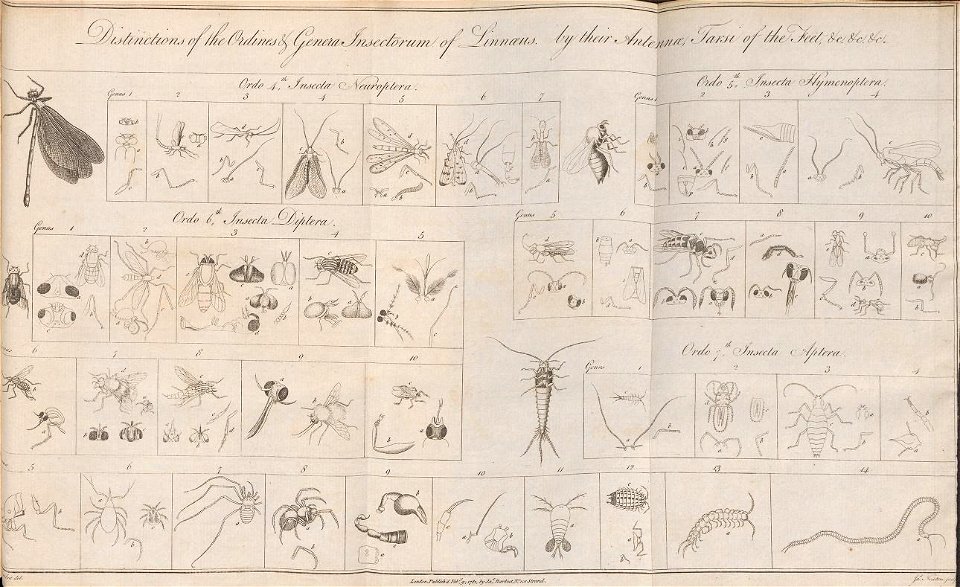 Distinctions of the Ordines & Genera Insectorum of Linnæus. by their Antennæ, Tarsi of the Feet, &c. &c. &c.
Ordo 4.th Insecta Neuroptera.
Genus 1 2 3 4 5 6 7
Ordo 5.th Insecta Hymenoptera.
Genus 1 2 3 4
Genus 5 6 7 8 9 10
Ordo 6.th Insecta Diptera.
Genus 1 2 3 4 5
6 7 8 9 10
Ordo 7.th Insecta Aptera.
Genus 1 2 3 4
5 6 7 8 9 10 11 12 13 14
del.
London, Publish'd